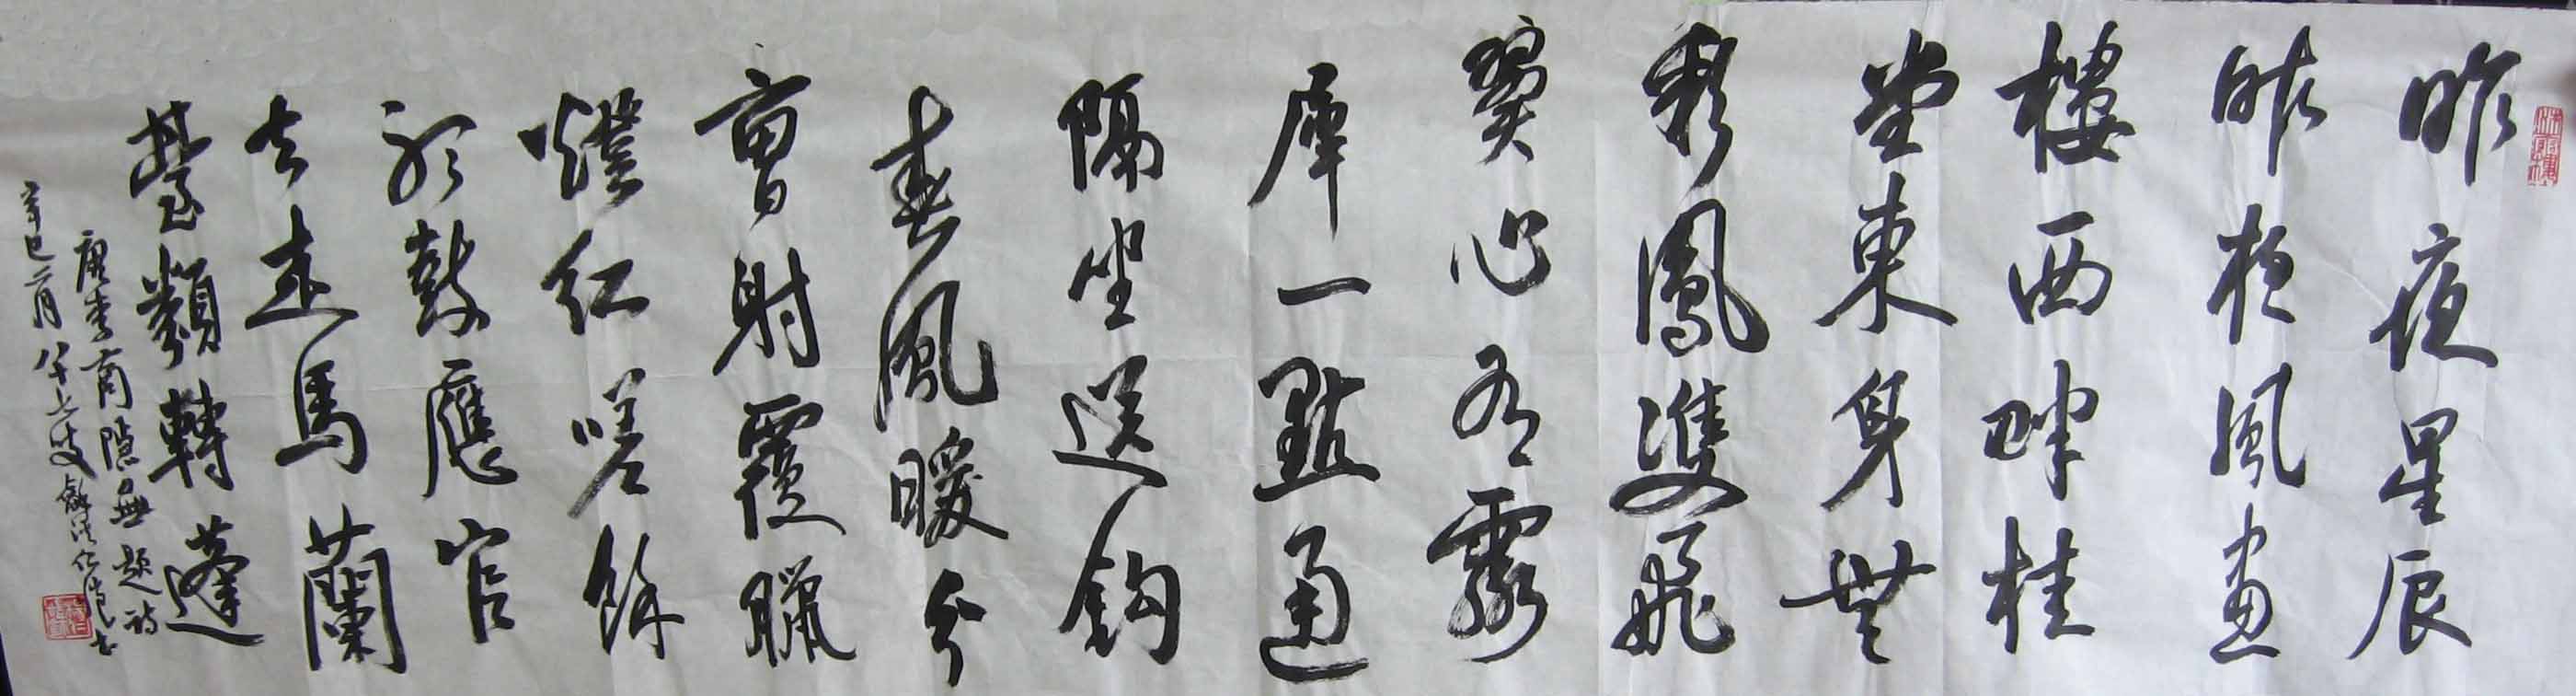 昨夜星辰
昨夜風畫
樓西畔桂
堂東身無
彩鳳雙飛
翼心有靈
犀一點通
隔坐送鈎
春風暖分
曹射覆臘
燈紅嗟餘
聽鼓應官
去走馬蘭
臺類轉蓬
唐李商隱無題詩
辛巳二月 八十七叟